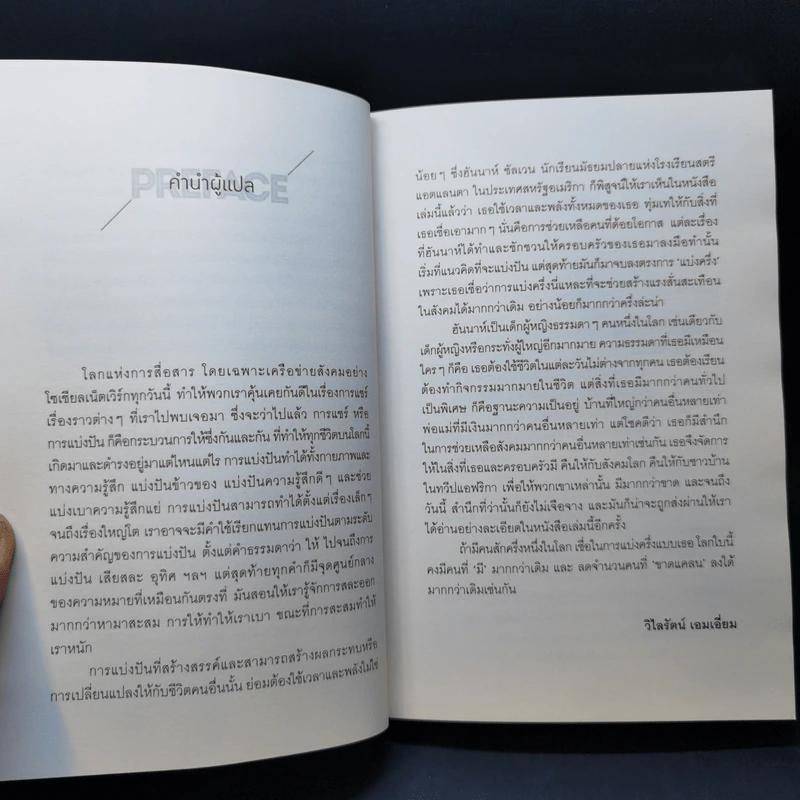 PREFACE
คำนำผู้แปล
โลกแห่งการสื่อสาร โดยเฉพาะเครือข่ายสังคมอย่าง
โซเชียลเน็ตเวิร์กทุกวันนี้ ทำให้พวกเราคุ้นเคยกันดีในเรื่องการแชร์
เรื่องราวต่างๆ ที่เราไปพบเจอมา ซึ่งจะว่าไปแล้ว การแชร์ หรือ
การแบ่งปัน ก็คือกระบวนการให้ซึ่งกันและกัน ที่ทำให้ทุกชีวิตบนโลกนี้
เกิดมาและดำรงอยู่มาแต่ไหนแต่ไร การแบ่งปันทำได้ทั้งกายภาพและ
ทางความรู้สึก แบ่งปันข้าวของ แบ่งปันความรู้สึกดีๆ และช่วย
แบ่งเบาความรู้สึกแย่ การแบ่งปันสามารถทำได้ตั้งแต่เรื่องเล็กๆ
จนถึงเรื่องใหญ่โต เราอาจจะมีคำใช้เรียกแทนการแบ่งปันตามระดับ
ความสำคัญของการแบ่งปัน ตั้งแต่คำธรรมดาว่า ให้ ไปจนถึงการ
แบ่งปัน เสียสละ อุทิศ ฯลฯ แต่สุดท้ายทุกคำก็มีจุดศูนย์กลาง
ของความหมายที่เหมือนกันตรงที่ มันสอนให้เรารู้จักการสละออก
มากกว่าหามาสะสม การให้ทำให้เราเบา ขณะที่การสะสมทำให้
เราหนัก
การแบ่งปันที่สร้างสรรค์และสามารถสร้างผลกระทบหรือ
การเปลี่ยนแปลงให้กับชีวิตคนอื่นนั้น ย่อมต้องใช้เวลาและพลังไม่ใช่
น้อยๆ ซึ่งฮันนาห์ ซัลเวน นักเรียนมัธยมปลายแห่งโรงเรียนสตรี
แอตแลนตา ในประเทศสหรัฐอเมริกา ก็พิสูจน์ให้เราเห็นในหนังสือ
เล่มนี้แล้วว่า เธอใช้เวลาและพลังทั้งหมดของเธอ ทุ่มเทให้กับสิ่งที่
เธอเชื่อเอามากๆ นั่นคือการช่วยเหลือคนที่ด้อยโอกาส แต่ละเรื่อง
ที่ฮันนาห์ได้ทำและชักชวนให้ครอบครัวของเธอมาลงมือทำนั้น
เริ่มที่แนวคิดที่จะแบ่งปัน แต่สุดท้ายมันก็มาจบลงตรงการ 'แบ่งครึ่ง'
เพราะเธอเชื่อว่าการแบ่งครึ่งนี่แหละที่จะช่วยสร้างแรงสั่นสะเทือน
ในสังคมได้มากกว่าเดิม อย่างน้อยก็มากกว่าครึ่งล่ะน่า
ฮันนาห์เป็นเด็กผู้หญิงธรรมดาๆ คนหนึ่งในโลก เช่นเดียวกับ
เด็กผู้หญิงหรือกระทั่งผู้ใหญ่อีกมากมาย ความธรรมดาที่เธอมีเหมือน
ใครๆ ก็คือ เธอต้องใช้ชีวิตในแต่ละวันไม่ต่างจากทุกคน เธอต้องเรียน
ต้องทำกิจกรรมมากมายในชีวิต แต่สิ่งที่เธอมีมากกว่าคนทั่วไป
เป็นพิเศษ ก็คือฐานะความเป็นอยู่ บ้านที่ใหญ่กว่าคนอื่นหลายเท่า
พ่อแม่ที่มีเงินมากกว่าคนอื่นหลายเท่า แต่โชคดีว่า เธอก็มีสำนึก
ในการช่วยเหลือสังคมมากกว่าคนอื่นหลายเท่าเช่นกัน เธอจึงจัดการ
ให้ในสิ่งที่เธอและครอบครัวมี คืนให้กับสังคมโลก คืนให้กับชาวบ้าน
ในทวีปแอฟริกา เพื่อให้พวกเขาเหล่านั้น มีมากกว่าขาด และจนถึง
วันนี้ สำนึกที่ว่านั้นก็ยังไม่เจือจาง และมันก็น่าจะถูกส่งผ่านให้เรา
ได้อ่านอย่างละเอียดในหนังสือเล่มนี้อีกครั้ง
ถ้ามีคนสักครึ่งหนึ่งในโลก เชื่อในการแบ่งครึ่งแบบเธอ โลกใบนี้
คงมีคนที่ 'มี' มากกว่าเดิม และ ลดจำนวนคนที่ 'ขาดแคลน' ลงได้
มากกว่าเดิมเช่นกัน
วิไลรัตน์ เอมเอี่ยม